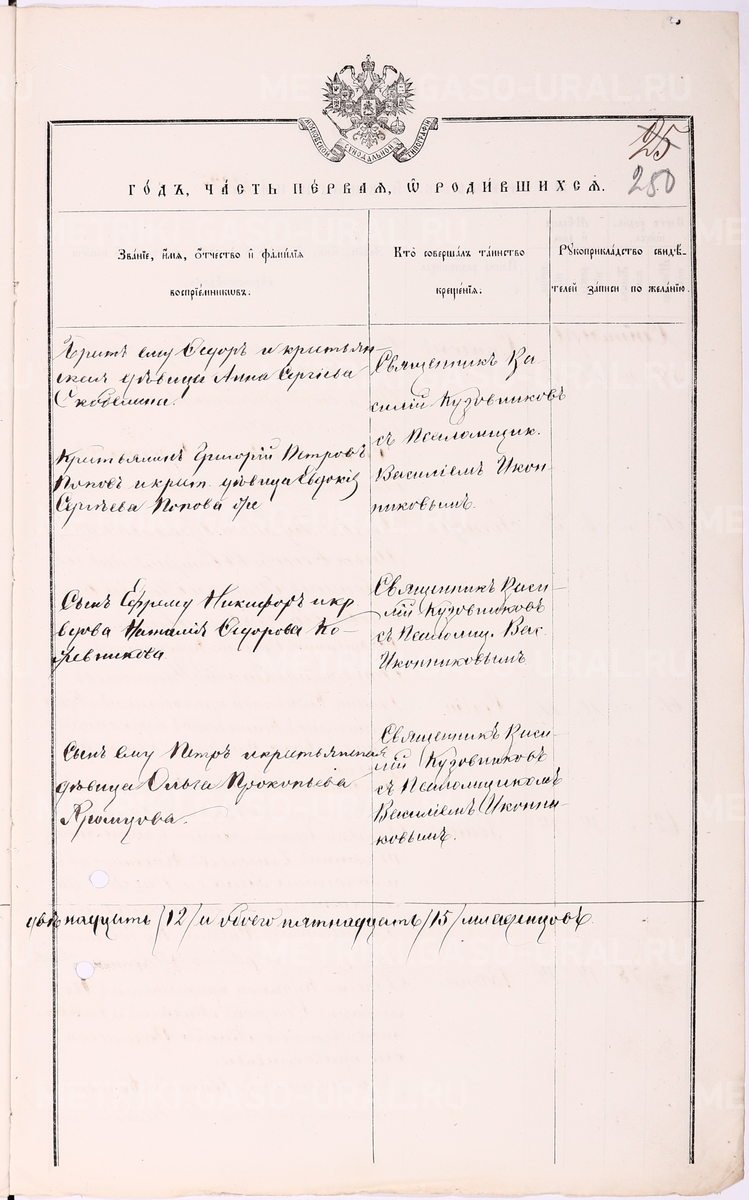 25
250
МОСКОВСКОЙ СѴНОДАЛЬНОЙ ТИПОГРАФІИ
ГО́ДЪ, ЧА́СТЬ ПЕ́РВАЯ, Ѽ РОДИ́ВШИХСЯ.
Зва́ніе, и҆́мя, ѻ҆́тчество и҆ фами́лія
воспріе́мниковъ.
Кто̀ соверша́лъ та́инство
креще́нія.
Рꙋкоприкла́дство свидѣ́-
телей за́писи по жела́нію.
Братъ ему Ѳедоръ и крестьян-
ская дѣвица Анна Сергіева
Скобелина.
Священникъ Ва-
силій Кузовниковъ
съ Псаломщик.
Василіемъ Икон-
никовымъ.
Крестьянинъ Григорій Петровъ
Поповъ и крест. дѣвица Евдокія
Сергѣева Попова
Сынъ Ефрему Никифоръ и кр
вдова Наталія Ѳедорова Ко-
жевникова
Священникъ Васи-
лій Кузовниковъ
съ Псаломщ. Вас.
Иконниковымъ
Сынъ ему Петръ и крестьянская
дѣвица Ольга Прокопьева
Священникъ Васи-
лій Кузовниковъ
съ Псаломщикомъ
Василіемъ Иконни-
ковымъ.
двѣнадцать /12/ и обоего пятнадцать /15/ младенцовъ.
METRIKI.GASO-URAL.RU